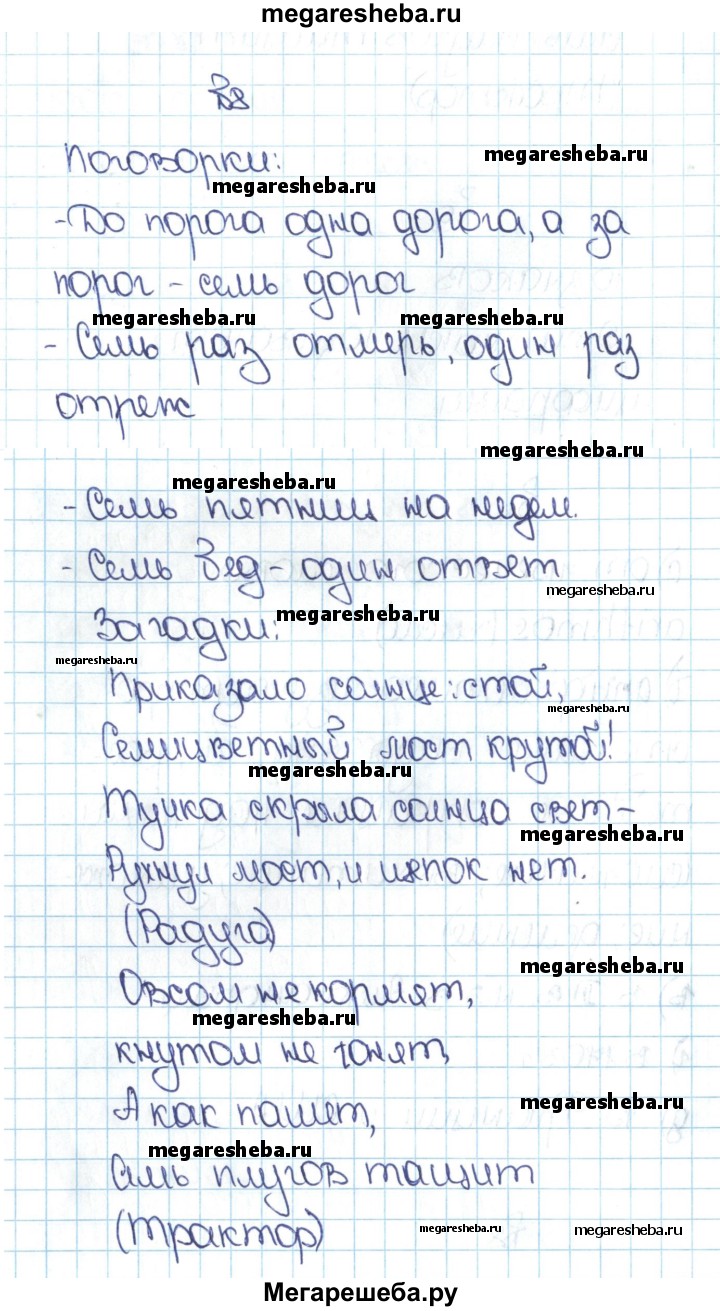 megaresheba.ru
№8
megaresheba.ru
Поговорки:
megaresheba.ru
-До порога одна дорога, а за
порог - семь дорог
megaresheba.ru megaresheba.ru
- Семь раз отмерь, один раз
отрежь
megaresheba.ru
megaresheba.ru
- Семь пятниц на недели.
- Семь бед - один ответ
megaresheba.ru
megaresheba.ru
Загадки:
megaresheba.ru
Приказало солнце: стой,
megaresheba.ru
Семицветный мост крутой!
megaresheba.ru
Тучка скрыла солнца свет -
megaresheba.ru
Рухнул мост, и щепок нет.
(Радуга)
megaresheba.ru
Овсом не кормят,
megaresheba.ru
кнутом не гонят,
megaresheba.ru
А как пашет,
megaresheba.ru
Семь плугов тащит
megaresheba.ru megaresheba.ru
(Трактор)
Мегарешеба.ру